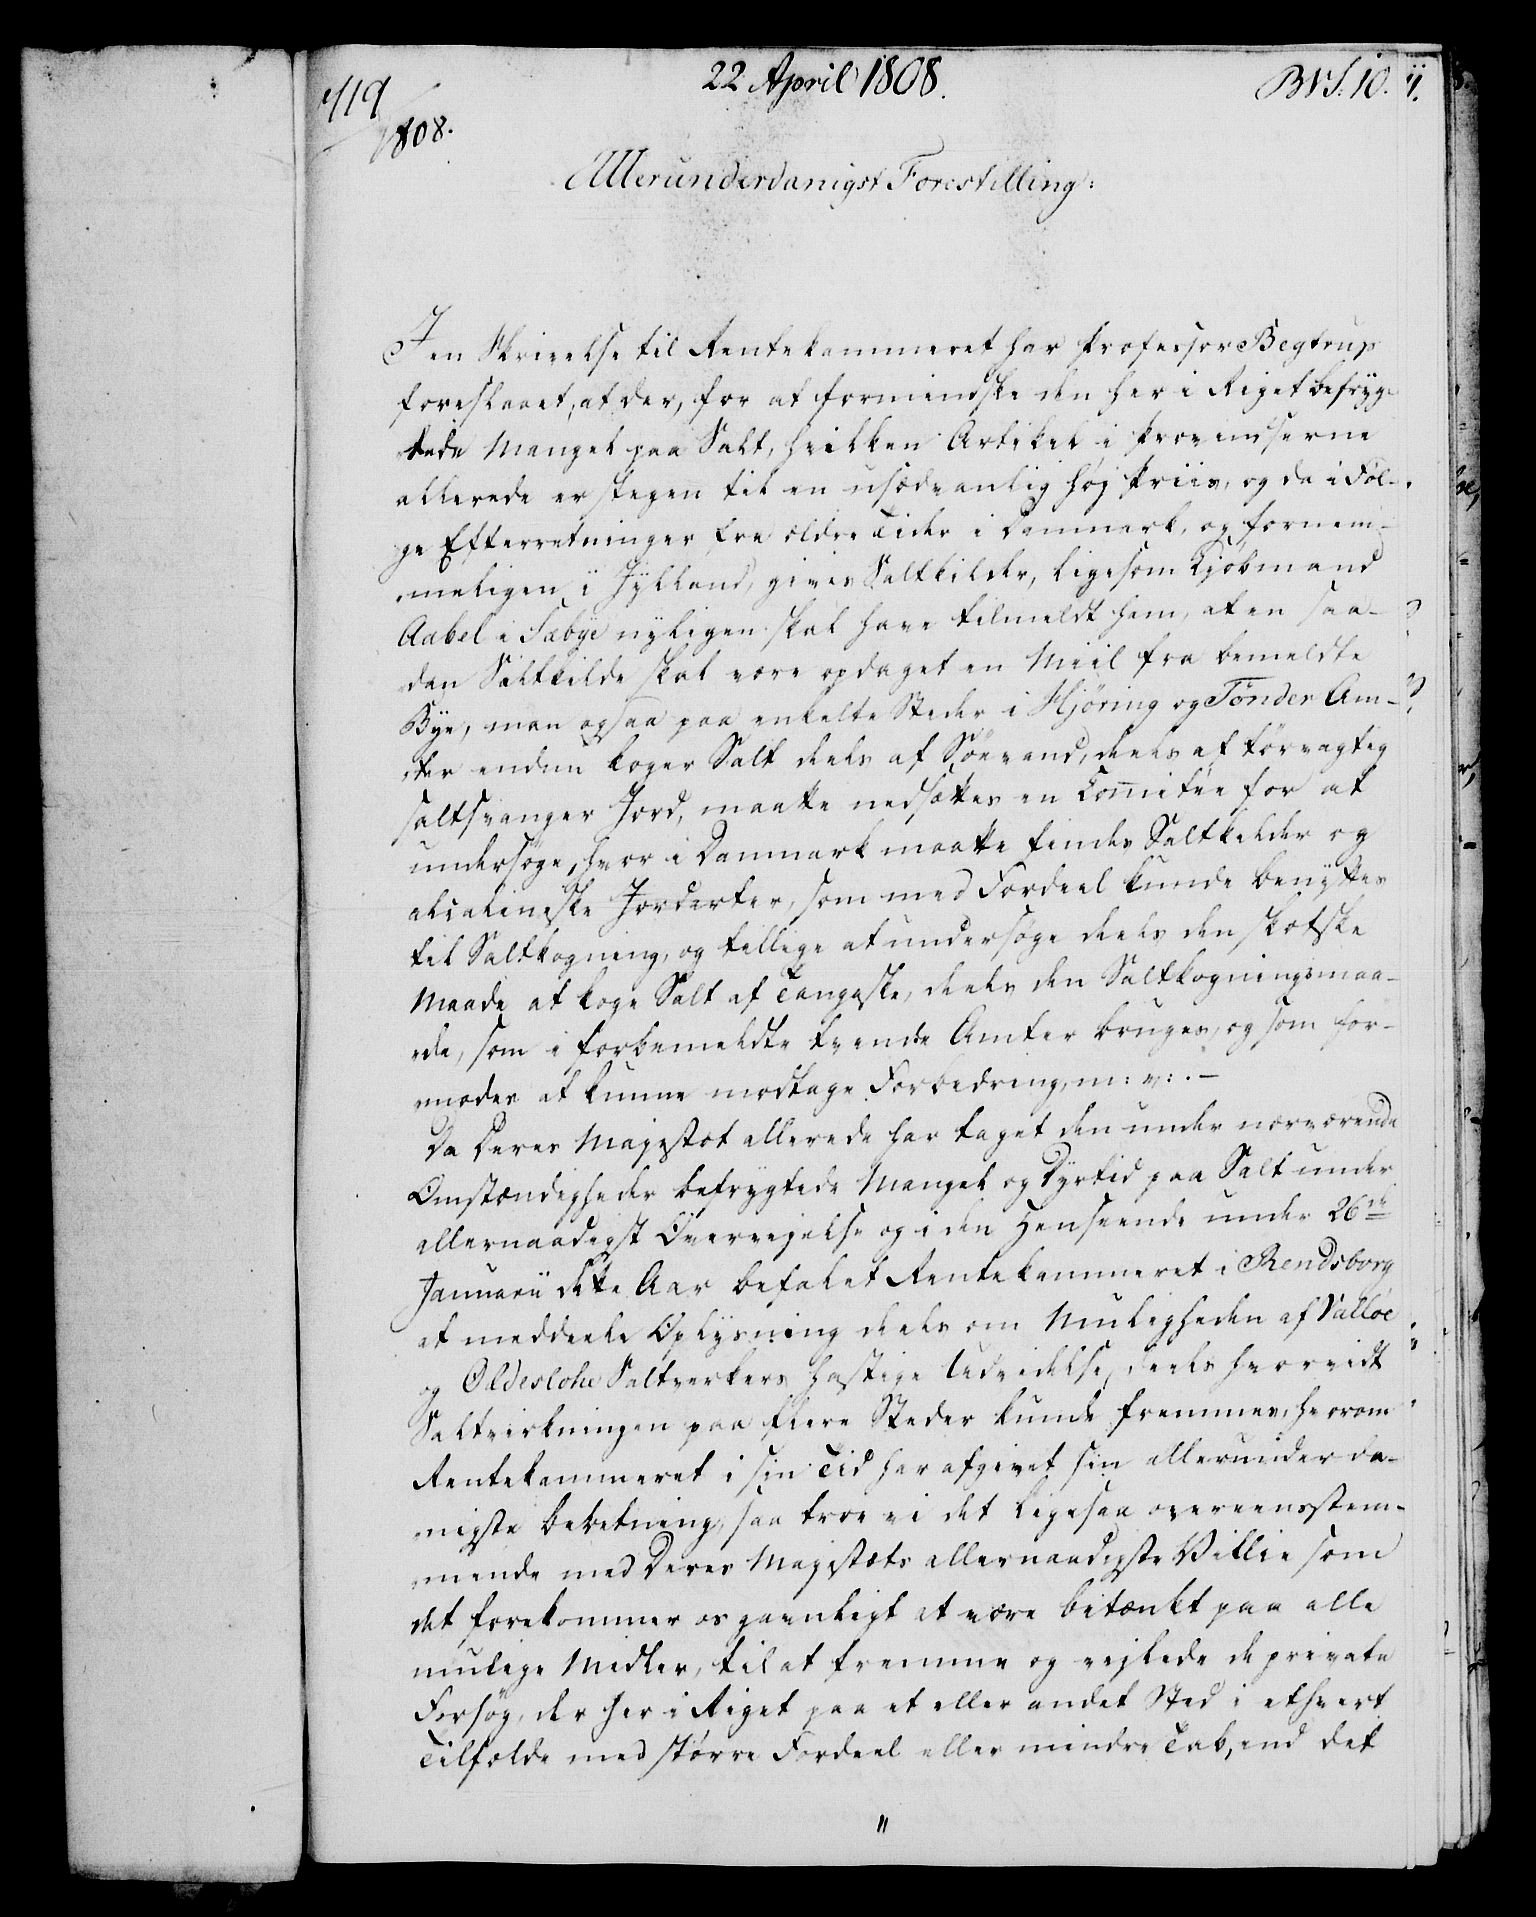 22 April 1808.
719
1808.
Allerunderdanigst Forestilling:
I en Skrivelse til Rentekammeret har Professor Begtrup
foreslaaet, at der, for at formindske den her i Riget befryg-
tede Mangel paa Salt, hvilken Artikel i Provindserne
allerede er stegen til en usædvanlig høj Priis, og da i Føl-
ge Efterretninger fra ældre Tider i Danmark, og fornem-
meligen i Jylland, gives Saltkilder, ligesom Kjøbmand
Aabel i Sæbye nyligen skal have tilmeldt ham, at en saa-
dan Saltkilde skal være opdaget en Miil fra bemeldte
Bye, man ogsaa paa enkelte Steder i Hjöring og Tönder Am-
ter endnu koger Salt deels af Söevand, deels af törvagtig
saltsvanger Jord, maatte nedsættes en Comitée for at
undersøge, hvor i Danmark maatte findes Saltkilder og
alcaliniske Jordarter, som med Fordeel kunde benyttes
til Saltkogning, og tillige at undersøge deels den skotske
Maade at koge Salt af Tangaske, deels den Saltkogningsmaa-
de, som i forbemeldte tvende Amter bruges, og som for-
modes at kunne modtage Forbedring, m: v:. -
Da Deres Majestæt allerede har taget den under nærværende
Omstændigheder befrygtede Mangel og Dyrtid paa Salt under
allernaadigst Overvejelse og i den Henseende under 26de
Januarii dette Aar befalet Rentekammeret i Rendsborg
at meddeele Oplysning deels om Muligheden af Valløe
og Oldeslohe Saltverkers hastige Udvidelse, deels hvorvidt
Saltvirkningen paa flere Steder kunde fremmes, hvorom
Rentekammeret i sin Tid har afgivet sin allerunderda-
nigste Betænkning, saa troe vi det ligesaa overeensstem-
mende med Deres Majestæts allernaadigste Villie som
det forekommer os gavnligt at være betænkt paa alle
mulige Midler, til at fremme og vejlede de private
Forsøg, der her i Riget paa et eller andet Sted i ethvert
Tilfælde med større Fordeel eller mindre Tab, end det
"